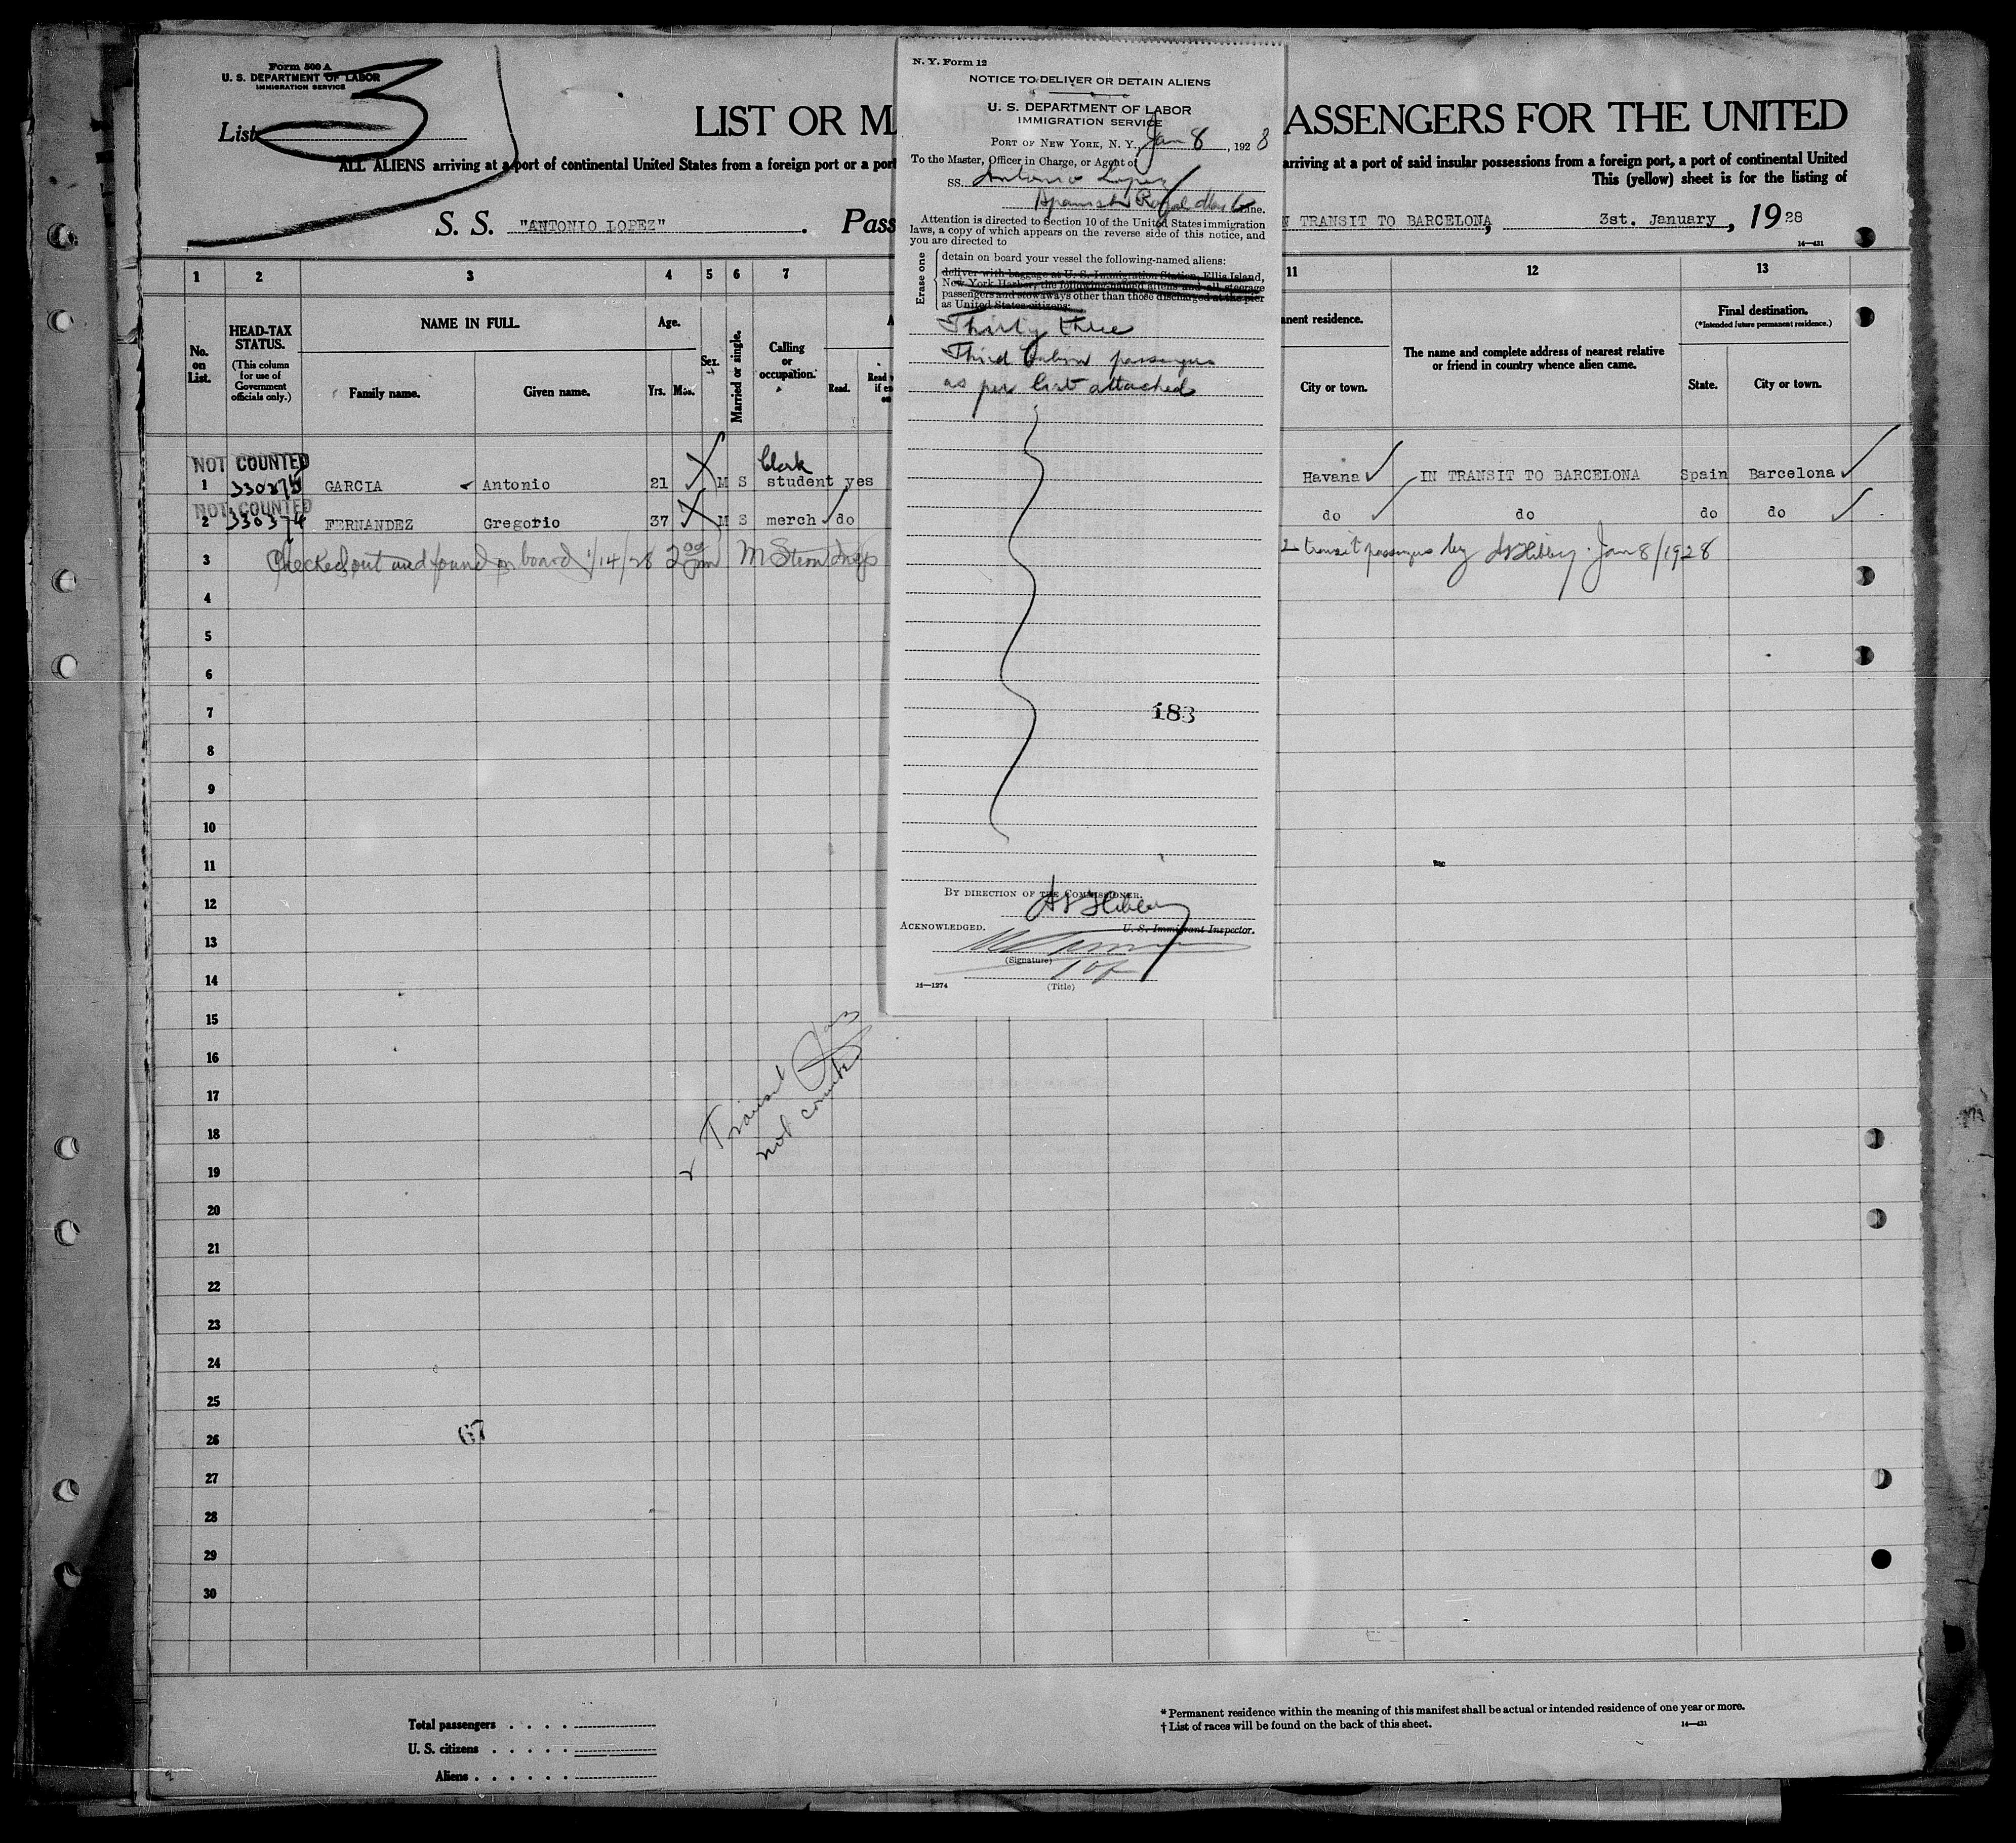 Form 500 A
U. S. DEPARTMENT OF LABOR
IMMIGRATION SERVICE
List 3
LIST OR MA
ASSENGERS FOR THE UNITED
ALL ALIENS arriving at a port of continental United States from a foreign port or a port
arriving at a port of said insular possessions from a foreign port, a port of continental United
This (yellow) sheet is for the listing of
S. S. "ANTONIO LOPEZ" . Pass
N TRANSIT TO BARCELONA, 3st. January, 1928
14—431
1 2 3 4 5 6 7 11 12 13
No. on List.
HEAD-TAX STATUS.
(This column for use of Government officials only.)
NAME IN FULL.
Family name.
Given name.
Age.
Yrs. Mos.
Sex.
Married or single.
Calling or occupation.
A
Read.
Read
if
on
anent residence.
City or town.
The name and complete address of nearest relative
or friend in country whence alien came.
Final destination.
(*Intended future permanent residence.)
State.
City or town.
NOT COUNTED
Clerk
1 GARCIA Antonio 21 M S student yes Havana IN TRANSIT TO BARCELONA Spain Barcelona
NOT COUNTED
2 330374 FERNANDEZ Gregorio 37 M S merch do do do do do
3 Checked out and found on board 1/14/28 2 00 pm M Stern Insp
2 transit passengers by Jan 8/1928
4
5
6
7
8
9
10
11
12
13
14
15
16
17
18
19
20
21
22
23
24
25
26
27
28
29
30
Transit
not counted
67
Total passengers . . . .
U. S. citizens . . . . .
Aliens . . . . . .
* Permanent residence within the meaning of this manifest shall be actual or intended residence of one year or more.
† List of races will be found on the back of this sheet.
14—431
N. Y. Form 12
NOTICE TO DELIVER OR DETAIN ALIENS
U. S. DEPARTMENT OF LABOR
IMMIGRATION SERVICE
PORT OF NEW YORK, N. Y., Jan 8, 1928
To the Master, Officer in Charge, or Agent of
SS. Antonio Lopez
Spanish Royal Mail Line.
Attention is directed to Section 10 of the United States immigration
laws, a copy of which appears on the reverse side of this notice, and
you are directed to
Erase one
detain on board your vessel the following-named aliens:
deliver with baggage at U. S. Immigration Station, Ellis Island,
New York Harbor, the following-named aliens and all steerage
passengers and stowaways other than those discharged at the pier
as United States citizens:
Thirty three
Third Cabin passengers
as per list attached
183
BY DIRECTION OF THE COMMISSIONER.
U. S. Immigrant Inspector.
ACKNOWLEDGED.
(Signature)
(Title)
14—1274